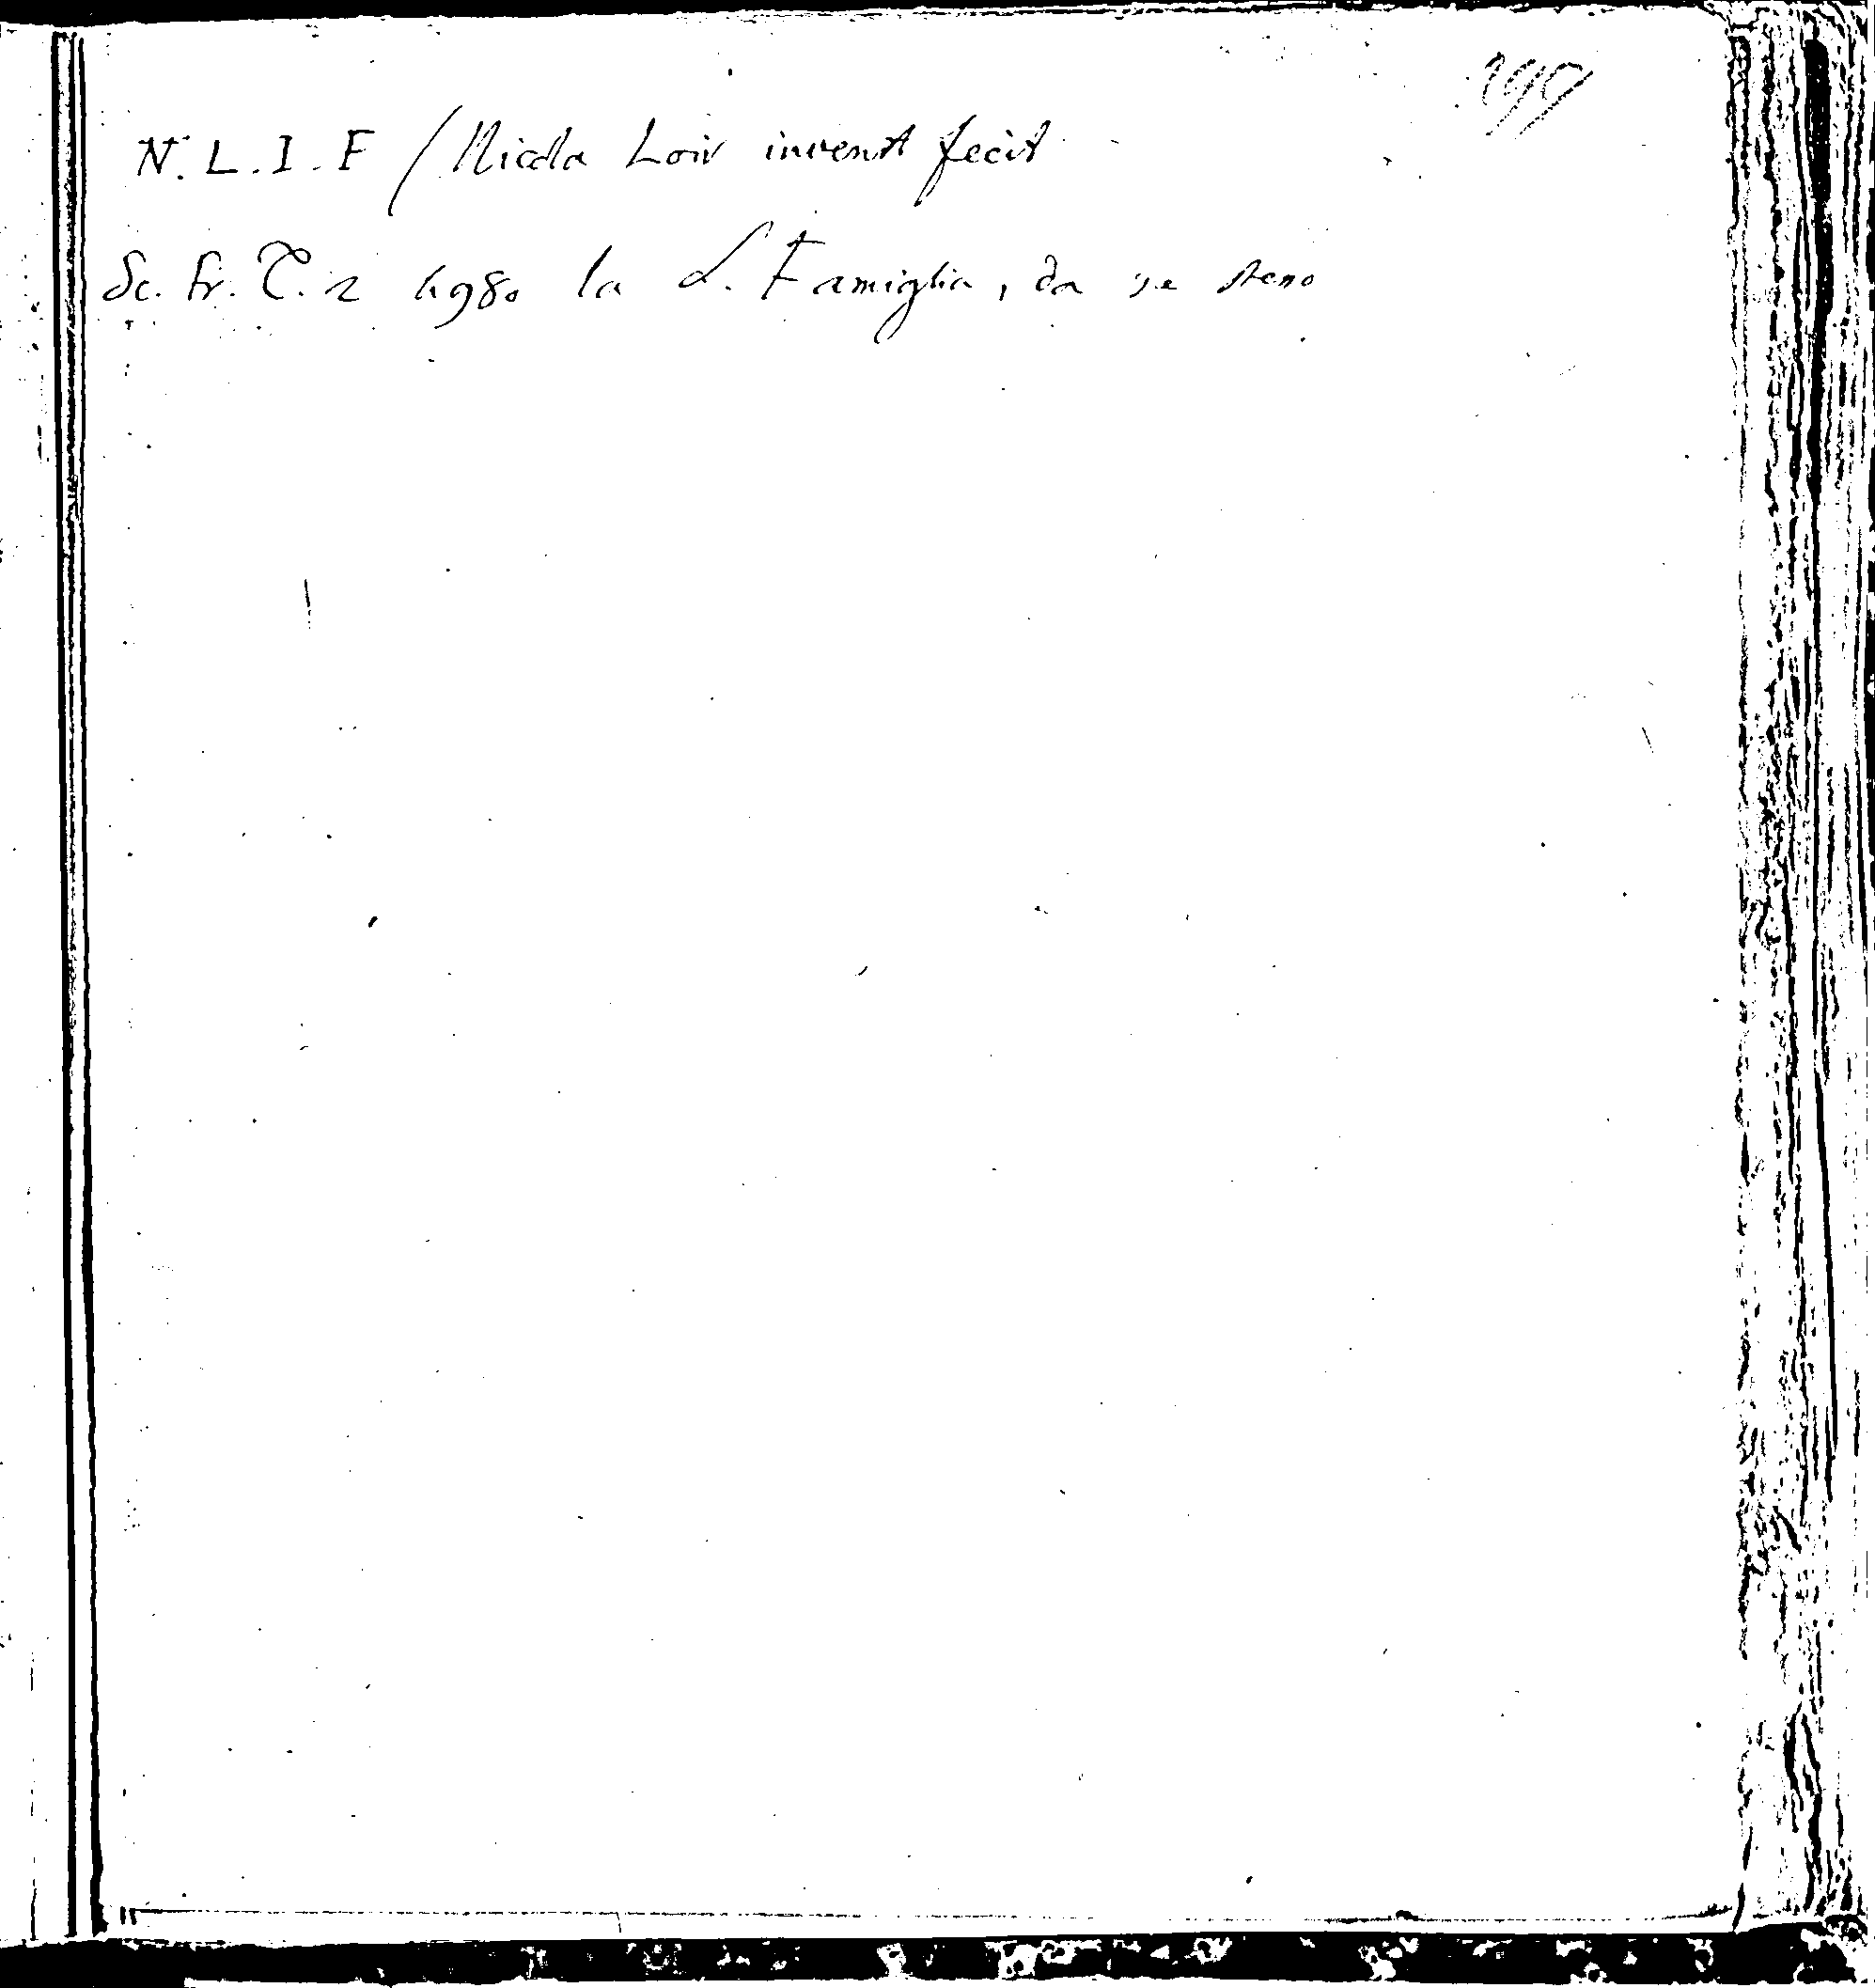 199
N. L. I. F / Nicola Loir invent fecit
Sc. Fr. T. 2 n 980 la S. Famiglia, da se steso